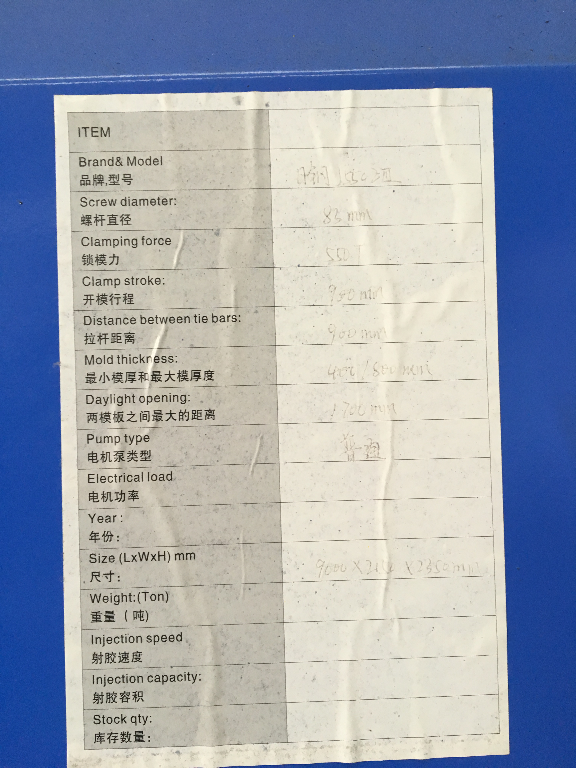 ITEM
Brand& Model
品牌,型号
Screw diameter:
85 mm
螺杆直径
Clamping force
锁模力
Clamp stroke:
900 mm
开模行程
Distance between tie bars:
900 mm
拉杆距离
Mold thickness:
最小模厚和最大模厚度
Daylight opening:
1700 mm
两模板之间最大的距离
Pump type
普通
电机泵类型
Electrical load
电机功率
Year :
年份:
Size (LxWxH) mm
尺寸:
Weight:(Ton)
重量 ( 吨)
Injection speed
射胶速度
Injection capacity:
射胶容积
Stock qty:
库存数量: